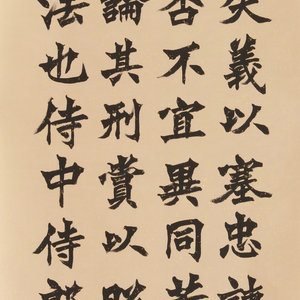 失義以塞忠諫
否不宜異同若
論其刑賞以昭
法也侍中侍郎